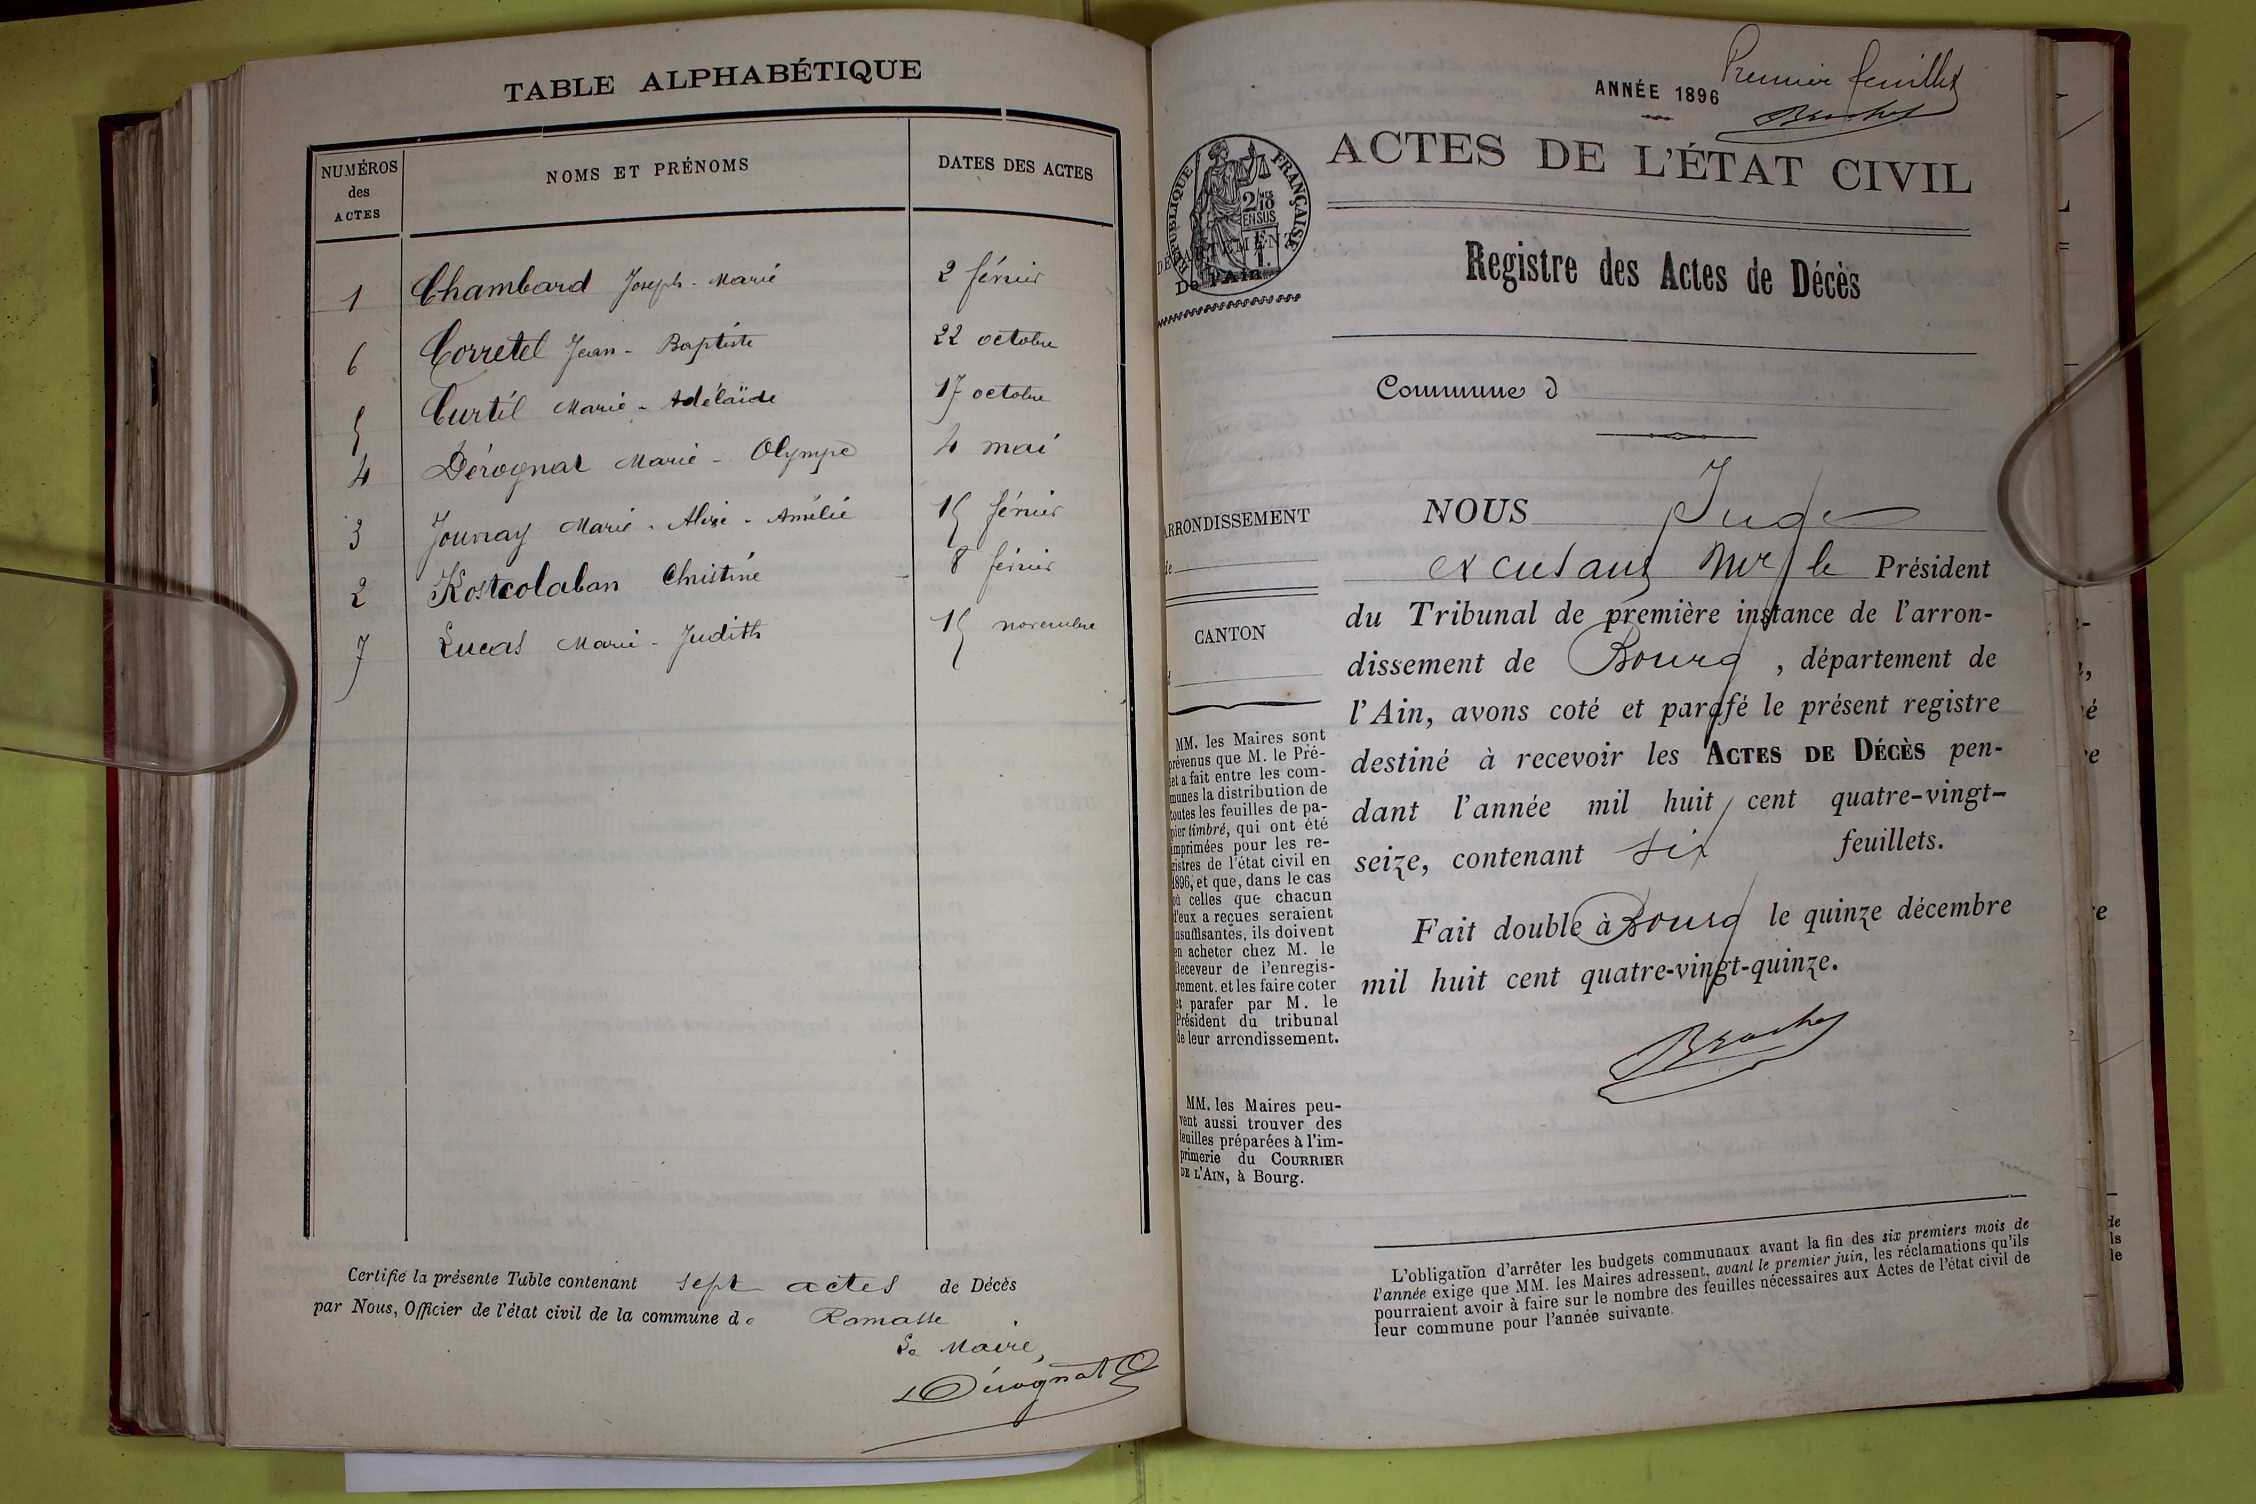 TABLE ALPHABÉTIQUE
NUMÉROS
des
ACTES
NOMS ET PRÉNOMS
DATES DES ACTES
1 Chambard Joseph-Marie 2 février
6 Corretel Jean-Baptiste 22 octobre
5 Curtil Marie-Adélaïde 17 octobre
4 Dérognat Marie-Olympe 4 mai
3 Journay Marie-Alexi-Amélie 15 février
2 Kostcolaban Christine 8 février
7 Lucas Marie-Judith 15 novembre
Certifié la présente Table contenant sept actes de Décès
par Nous, Officier de l'état civil de la commune de Ramasse
Le Maire,
Dérognat
ANNÉE 1896
Premier feuillet
Brochet
ACTES DE L'ÉTAT CIVIL
RÉPUBLIQUE FRANÇAISE
2/10
EN SUS
DÉPARTEMENT
De l'Ain
Registre des Actes de Décès
Commune d
ARRONDISSEMENT
de
CANTON
d
MM. les Maires sont
prévenus que M. le Pré-
fet a fait entre les com-
munes la distribution de
toutes les feuilles de pa-
pier timbré, qui ont été
imprimées pour les re-
gistres de l'état civil en
1896, et que, dans le cas
où celles que chacun
d'eux a reçues seraient
insuffisantes, ils doivent
en acheter chez M. le
Receveur de l'enregis-
trement, et les faire coter
et parafer par M. le
Président du tribunal
de leur arrondissement.
MM. les Maires peu-
vent aussi trouver des
feuilles préparées à l'im-
primerie du COURRIER
DE L'AIN, à Bourg.
NOUS Juge
excusant Mr le Président
du Tribunal de première instance de l'arron-
dissement de Bourg, département de
l'Ain, avons coté et parafé le présent registre
destiné à recevoir les ACTES DE DÉCÈS pen-
dant l'année mil huit cent quatre-vingt-
seize, contenant six feuillets.
Fait double à Bourg le quinze décembre
mil huit cent quatre-vingt-quinze.
Brochet
L'obligation d'arrêter les budgets communaux avant la fin des six premiers mois de
l'année exige que MM. les Maires adressent, avant le premier juin, les réclamations qu'ils
pourraient avoir à faire sur le nombre des feuilles nécessaires aux Actes de l'état civil de
leur commune pour l'année suivante.